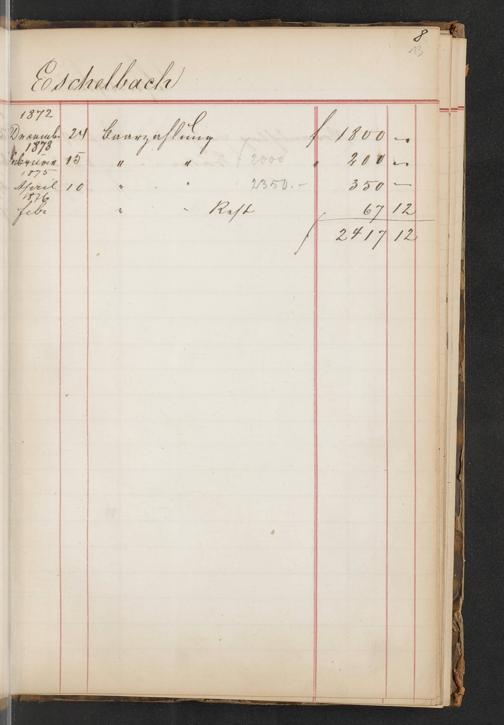 8
13
Eschelbach
1872
Decemb. 24 Baarzahlung f 1800 –
1873
Februar 15 " " 2000 " 200 –
1875
April 10 " " 2350.– 350 –
1876
Febr " " Rest 67 12
f 2417 12